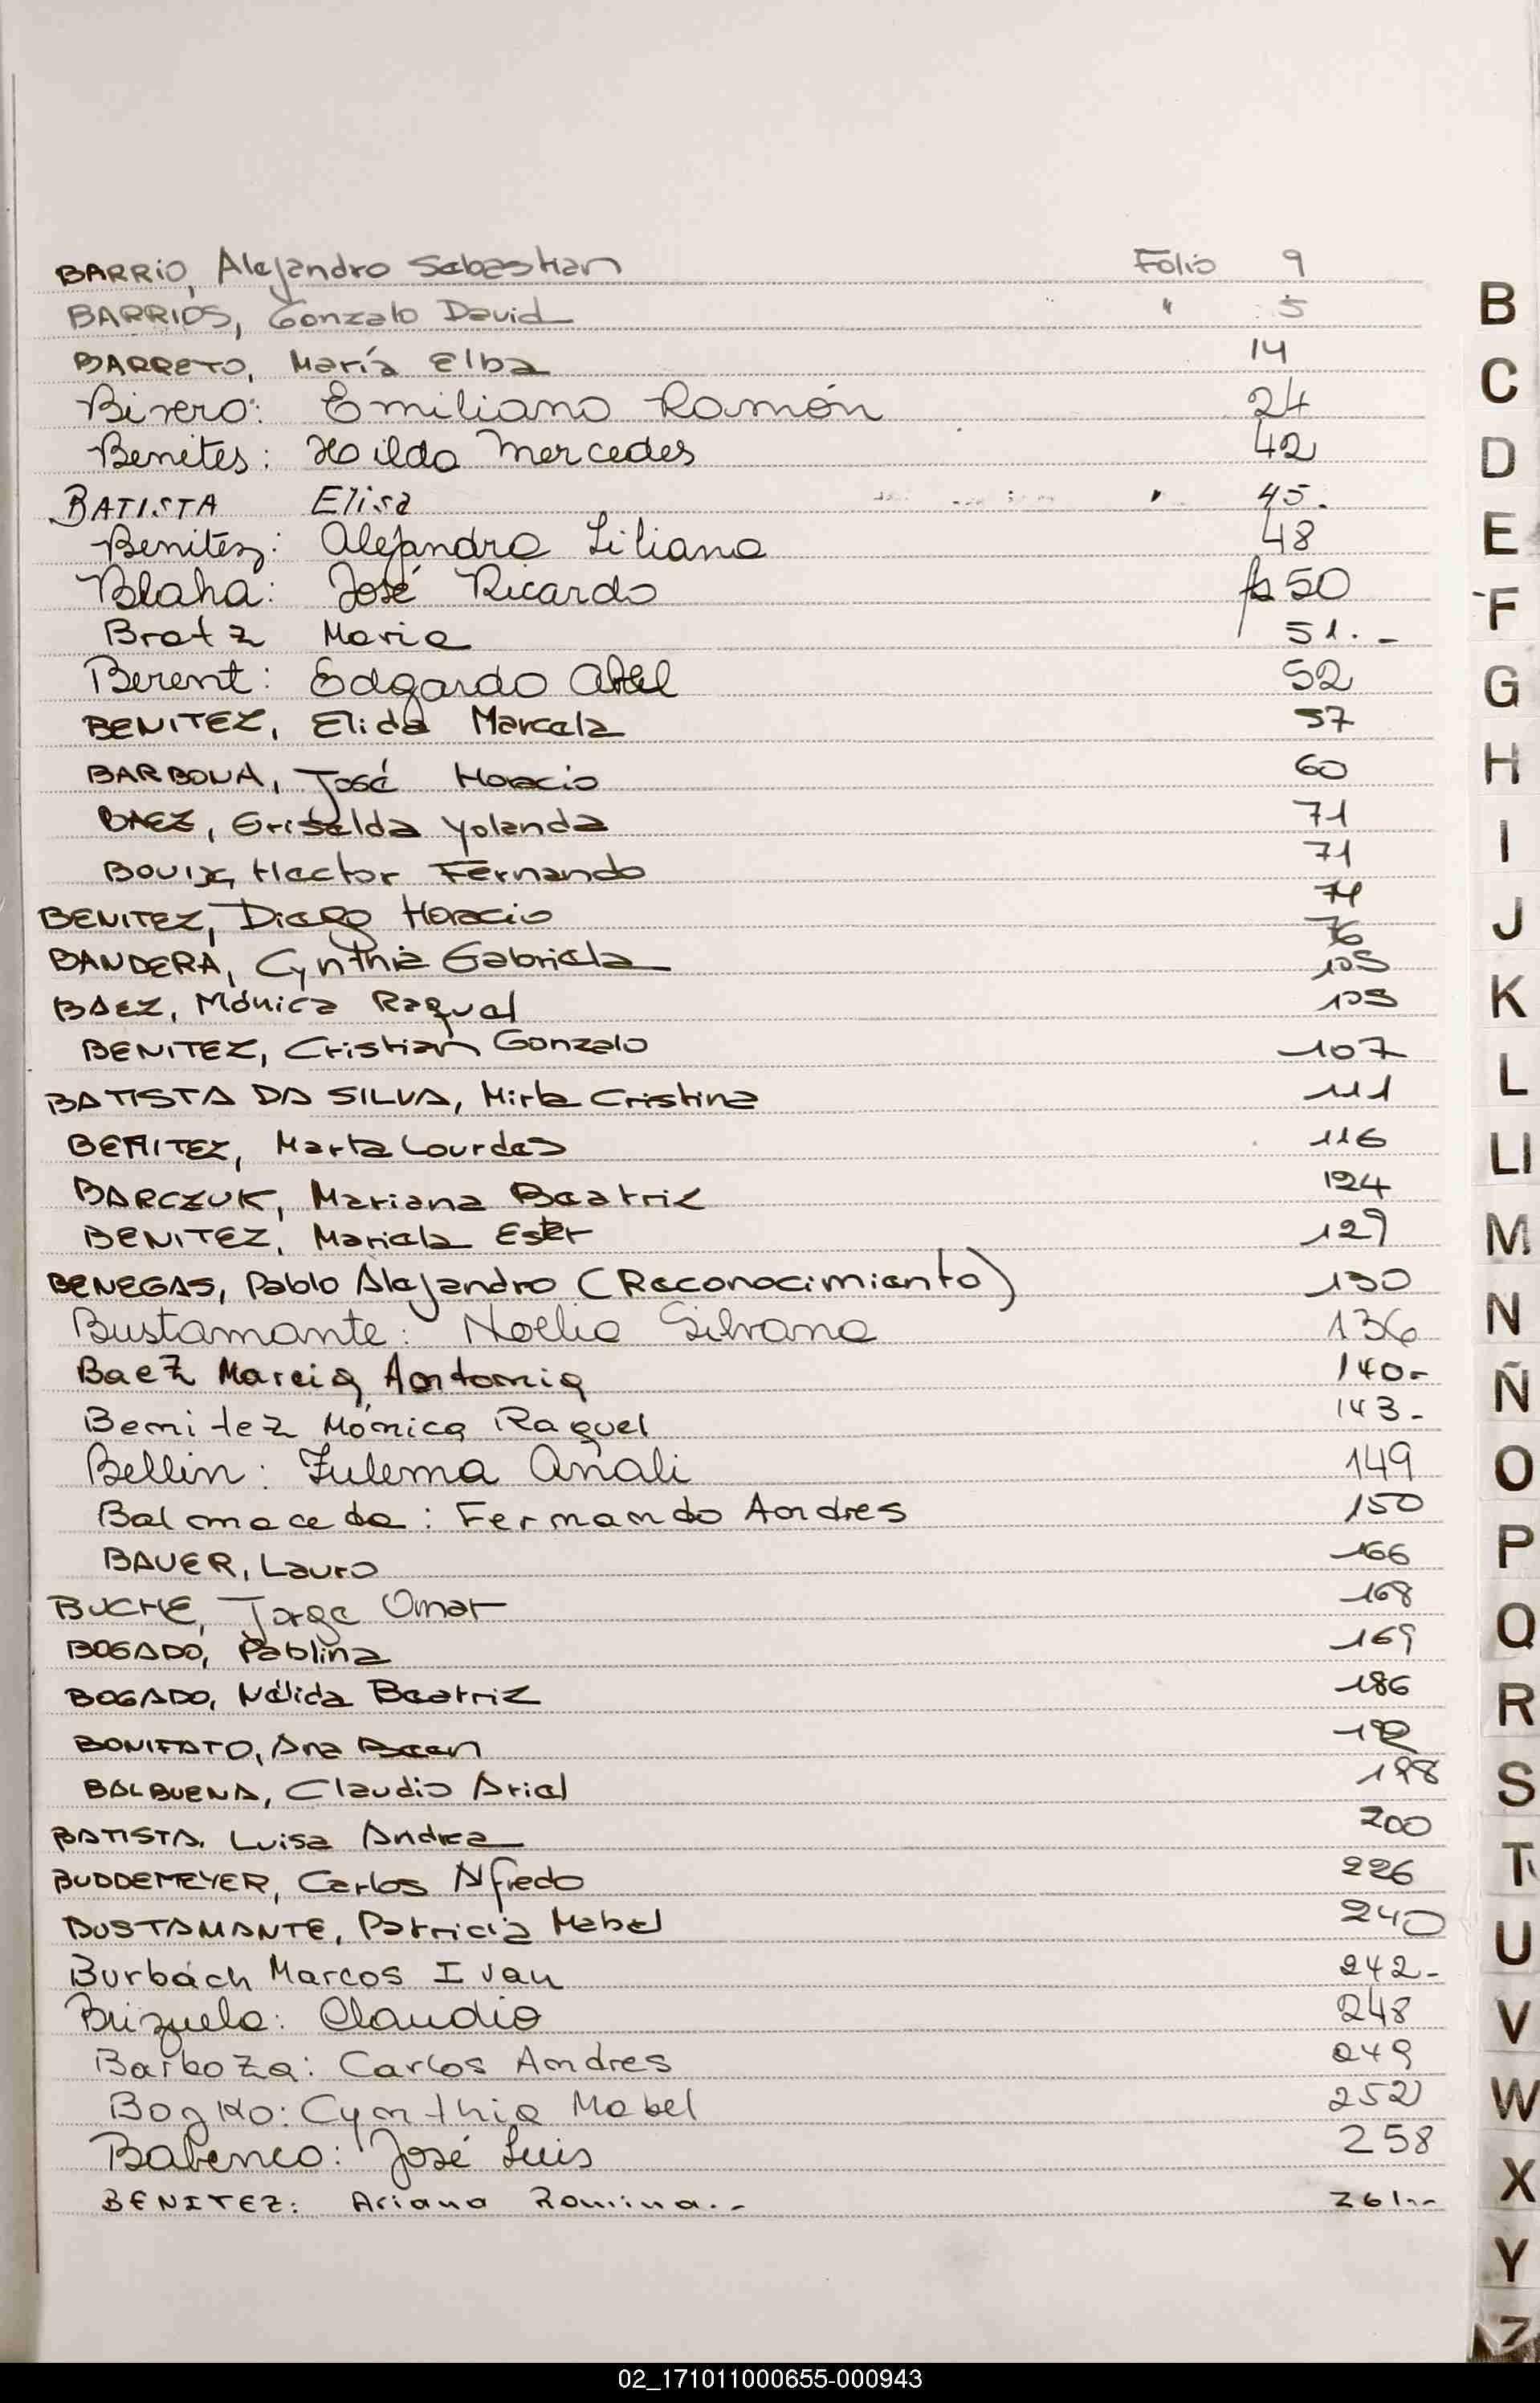 BARRIO, Alejandro Sebastian Folio 9
BARRIOS, Gonzalo David " 5
BARRETO, María Elba 14
Bivero: Emiliano Ramón 24
Benites: Hilda Mercedes 42
BATISTA Elisa 45.
Benitez: Alejandra Liliana 48
Blaha: José Ricardo 50
Bratz Maria 51.-
Berent: Edgardo Abel 52
BENITEZ, Elida Marcela 57
BARBONA, José Horacio 60
BAEZ, Griselda Yolanda 71
BOUIX, Hector Fernando 71
BENITEZ, Diego Horacio 74
76
BANDERA, Cynthia Gabriela 105
BAEZ, Mónica Raquel 105
BENITEZ, Cristian Gonzalo 107
BATISTA DA SILVA, Mirta Cristina 111
BENITEZ, Marta Lourdes 116
BARCZUK, Mariana Beatriz 124
BENITEZ, Mariela Ester 129
BENEGAS, Pablo Alejandro (Reconocimiento) 130
Bustamante: Noelia Silvana 136
Baez Marcia Antonia 140-
Benitez Mónica Raquel 143-
Bellin: Zulema Anali 149
Balmaceda: Fernando Andres 150
BAUER, Lauro 166
BUCHE, Jorge Omar 168
BOGADO, Pablina 169
BOGADO, Nélida Beatriz 186
BONIFATO, Ana
BALBUENA, Claudio Ariel 198
BATISTA, Luisa Andrea 200
BUDDEMEYER, Carlos Alfredo 226
BUSTAMANTE, Patricia Mabel 240
Burbach Marcos Ivan 242-
Brizuela: Claudio 248
Barboza: Carlos Andres 249
Bogko: Cynthia Mabel 252
Babenco: José Luis 258
BENITEZ: Ariana Romina.- 261.--
B
C
D
E
F
G
H
I
J
K
L
Ll
M
N
Ñ
O
P
Q
R
S
T
U
V
W
X
Y
Z
02_171011000655-000943